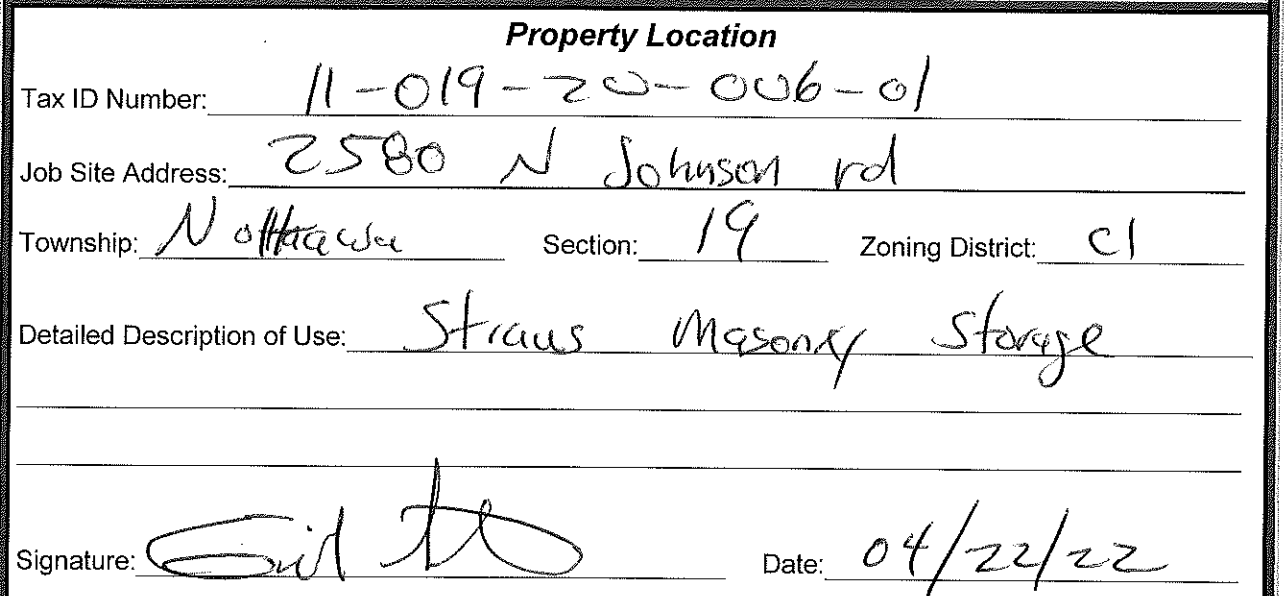 Property Location
Tax ID Number: 11-019-20-006-01
Job Site Address: 2580 N Johnson rd
Township: Nottawa Section: 19 Zoning District: C1
Detailed Description of Use: Straus Masonry Storage
Signature:
Date: 04/22/22